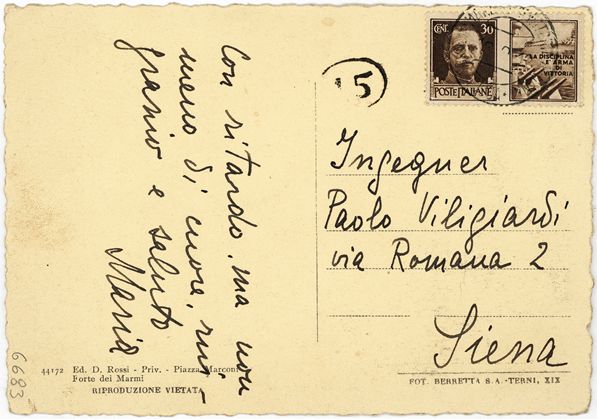 Con ritardo, ma non
meno di cuore, rin-
grazio e saluto
Maria
5
CENT. 30
POSTE ITALIANE
LA DISCIPLINA
È ARMA
DI
VITTORIA
Ingegner
Paolo Viligiardi
via Romana 2
Siena
44172 Ed. D. Rossi - Priv. - Piazza Marconi
Forte dei Marmi
RIPRODUZIONE VIETATA
FOT. BERRETTA S.A. - TERNI, XIX
6683